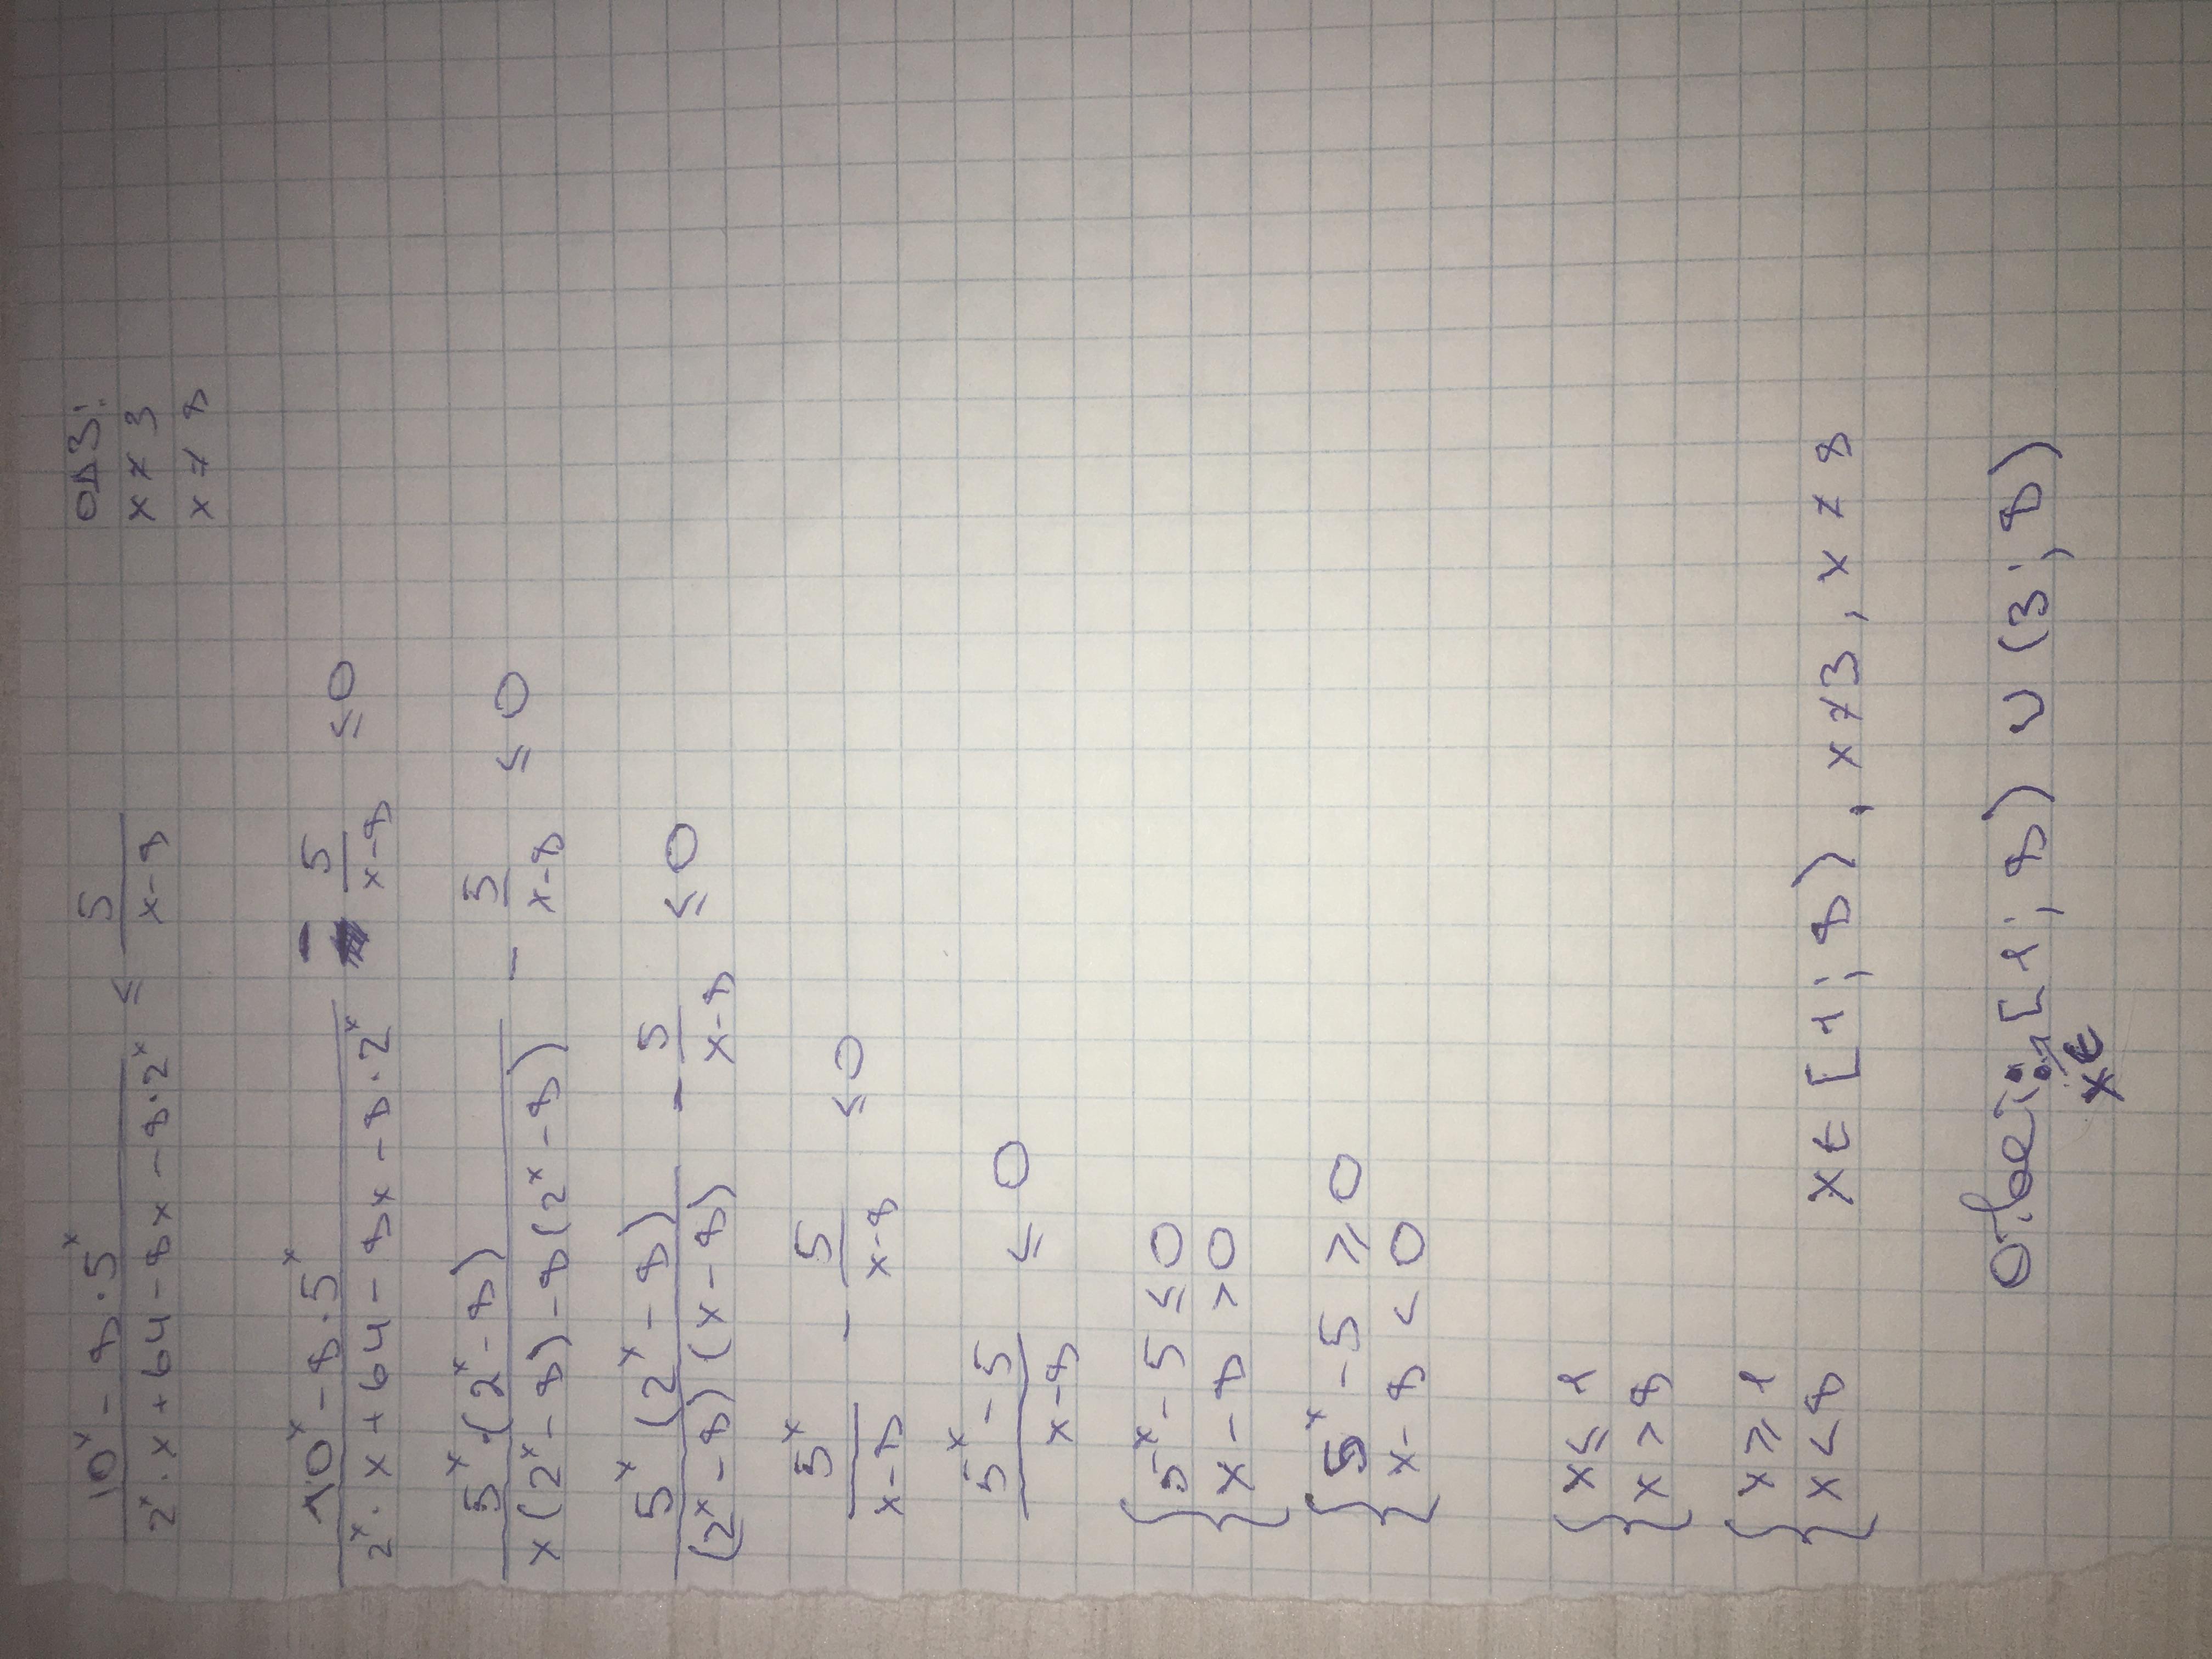 (10ˣ - 8·5ˣ)/(2ˣ·x + 64 - 8x - 8·2ˣ) ≤ 5/(x-8)
ОДЗ:
x ≠ 3
x ≠ 8
(10ˣ - 8·5ˣ)/(2ˣ·x + 64 - 8x - 8·2ˣ) - 5/(x-8) ≤ 0
(5ˣ·(2ˣ-8))/(x(2ˣ-8) - 8(2ˣ-8)) - 5/(x-8) ≤ 0
(5ˣ(2ˣ-8))/((2ˣ-8)(x-8)) - 5/(x-8) ≤ 0
5ˣ/(x-8) - 5/(x-8) ≤ 0
(5ˣ-5)/(x-8) ≤ 0
{ 5ˣ-5 ≤ 0
x-8 > 0
{ 5ˣ-5 ≥ 0
x-8 < 0
{ x ≤ 1
x > 8
{ x ≥ 1
x < 8
x ∈ [1; 8), x ≠ 3, x ≠ 8
Ответ: x ∈ [1; 8) ∪ (3; 8)